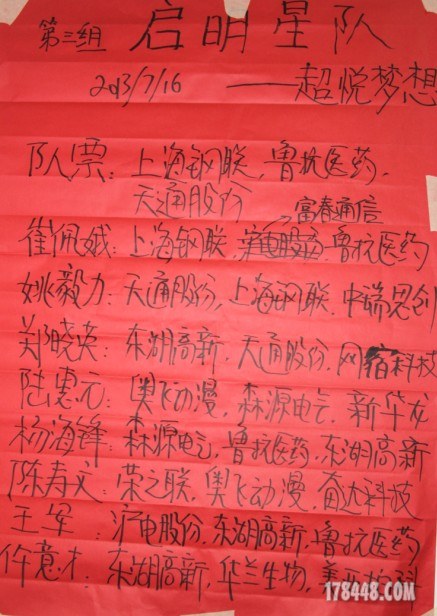 第三组 启明星队
2013/7/16 ——超悦梦想
队票: 上海钢联、鲁抗医药、
天通股份
富春通信
崔佩娥: 上海钢联、鲁抗医药
姚毅力: 天通股份、上海钢联、中瑞思创
郑晓英: 东湖高新、天通股份、网宿科技
陆惠元: 奥飞动漫、森源电气、新华龙
杨海锋: 森源电气、鲁抗医药、东湖高新
陈寿文: 荣之联、奥飞动漫、奋达科技
王军: 沪电股份、东湖高新、鲁抗医药
仵意才: 东湖高新、华兰生物、
178448.COM